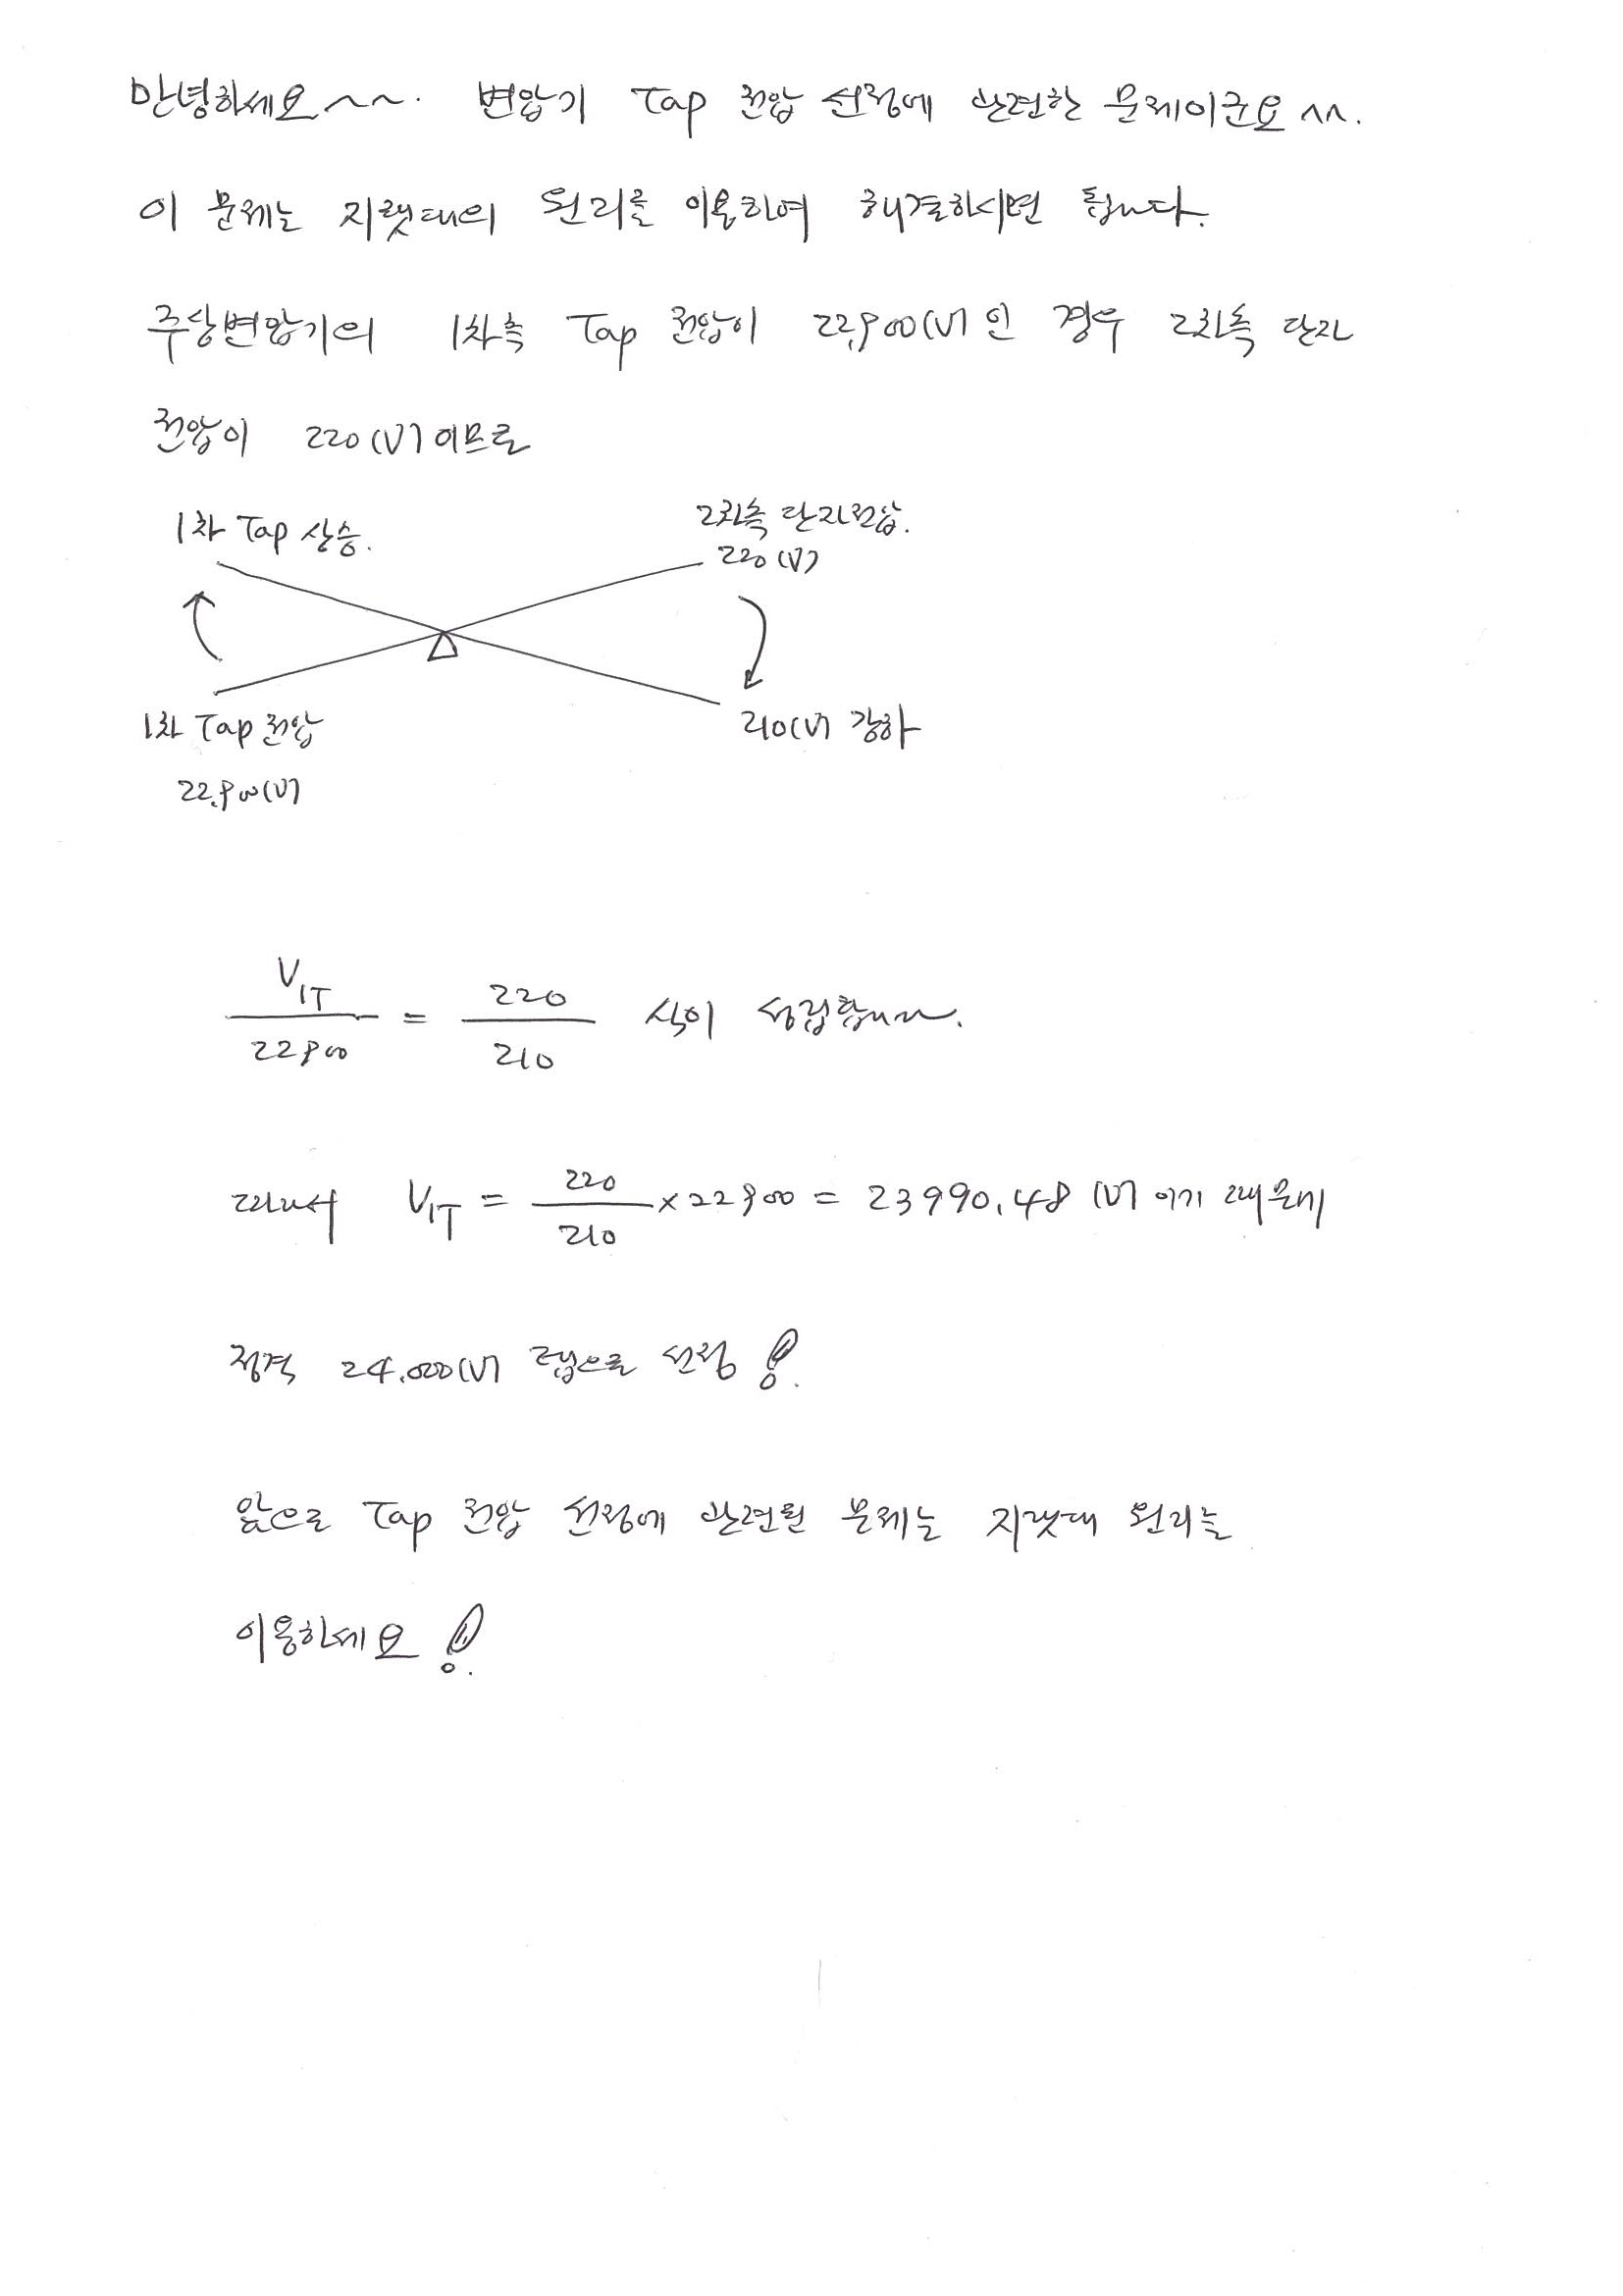 안녕하세요~~. 변압기 Tap 전압 선정에 관련한 문제이군요 ^^.
이 문제는 지렛대의 원리를 이용하여 해결하시면 됩니다.
주상변압기의 1차측 Tap 전압이 22,900(V)인 경우 2차측 단자
전압이 220(V)이므로
1차 Tap 상승.
2차측 단자전압.
220(V)
1차 Tap 전압
22,900(V)
210(V) 강하
V1T / 22900 = 220 / 210 식이 성립합니다.
따라서 V1T = 220 / 210 × 22900 = 23990.48 (V) 이기 때문에
정격 24,000(V) 탭으로 선정!
앞으로 Tap 전압 선정에 관련된 문제는 지렛대 원리를
이용하세요!